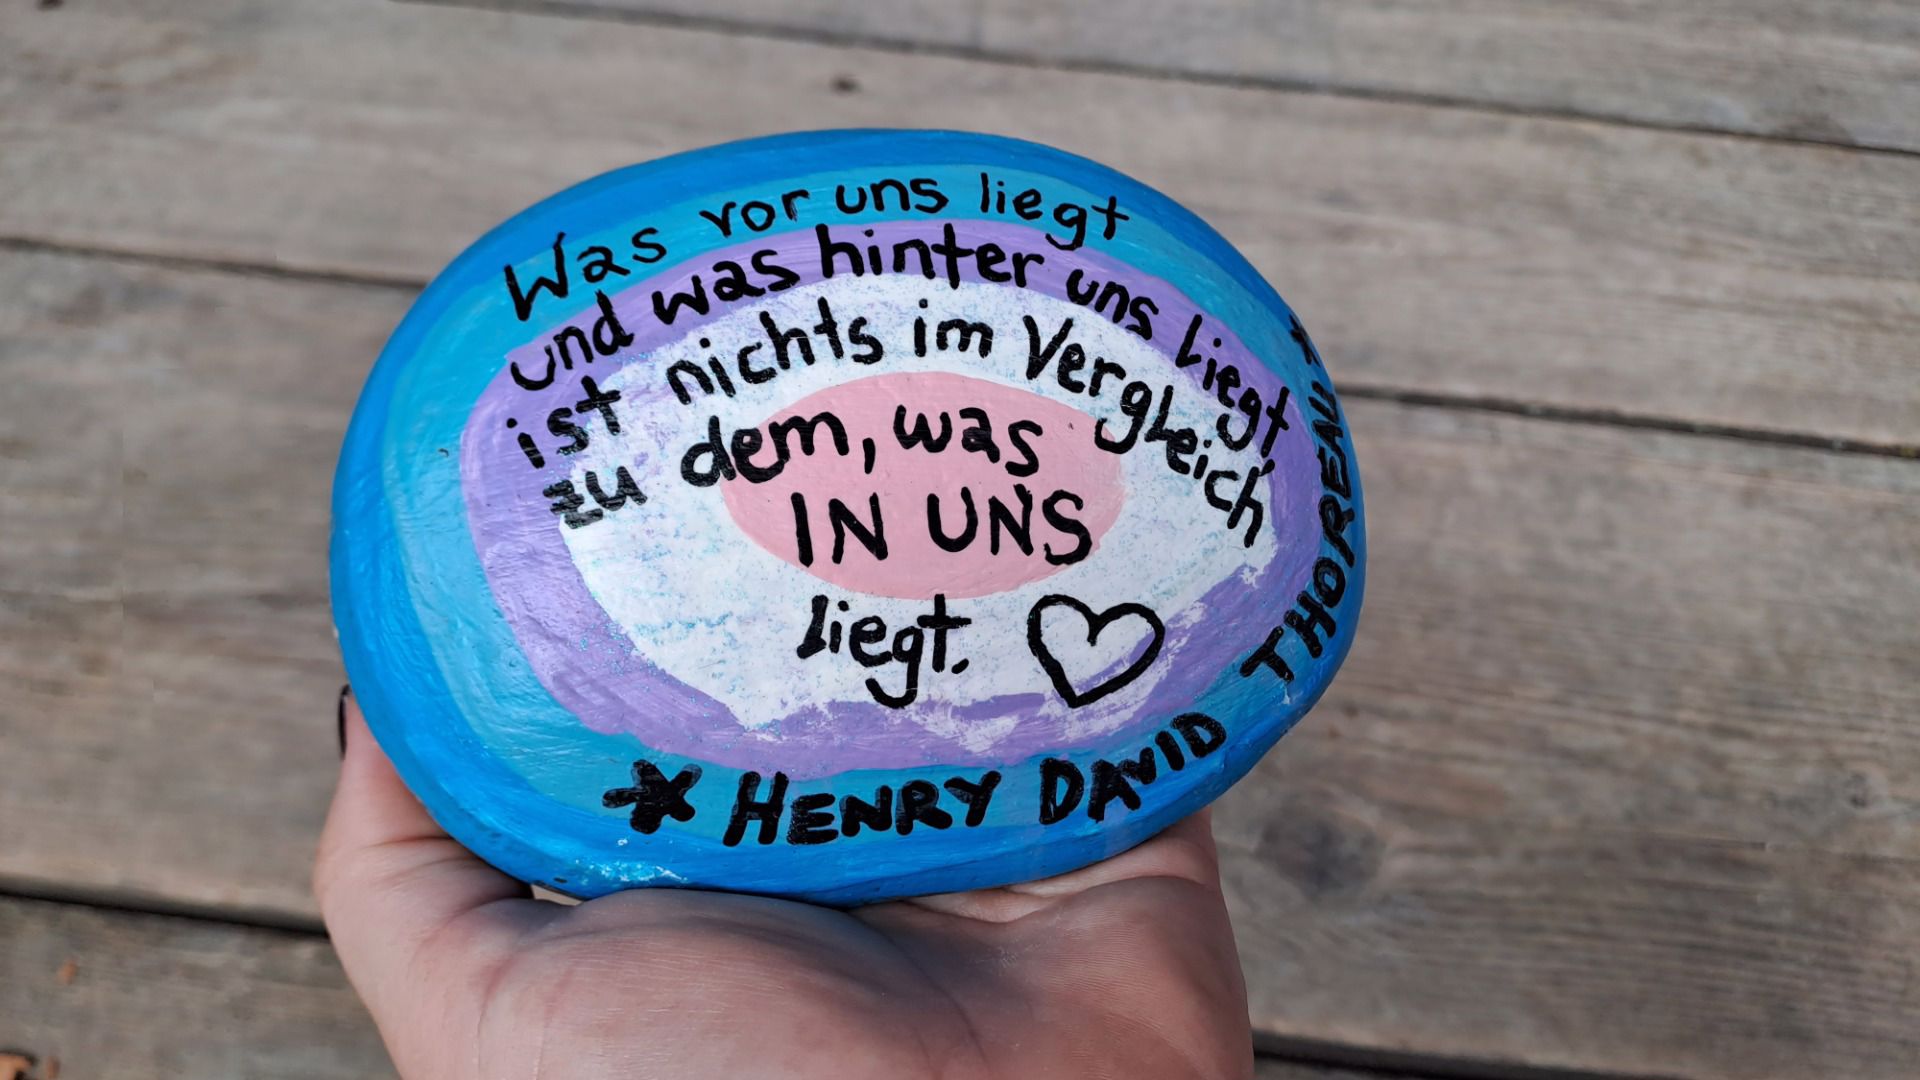 Was vor uns liegt
und was hinter uns liegt
ist nichts im Vergleich
zu dem, was
IN UNS
liegt.
* HENRY DAVID THOREAU *